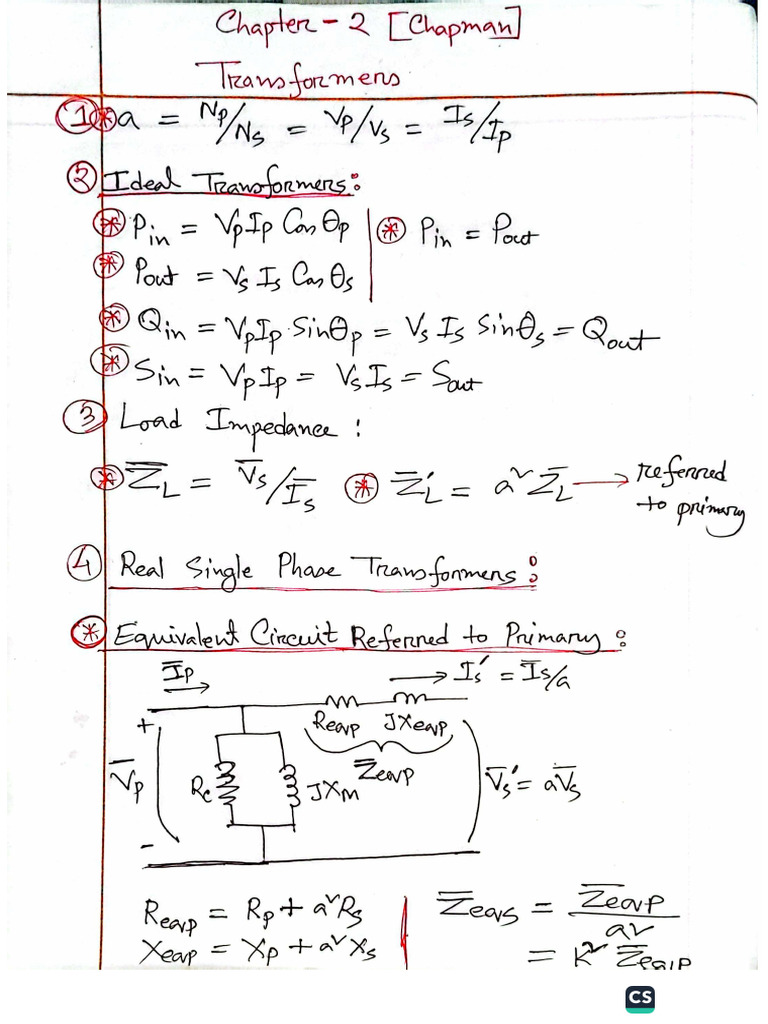 Chapter - 2 [Chapman]
Transformers
① * a = Np/Ns = Vp/Vs = Is/Ip
② Ideal Transformers:
* Pin = VpIp Cos θp | * Pin = Pout
* Pout = Vs Is Cos θs
* Qin = VpIp Sinθp = Vs Is Sinθs = Qout
* Sin = VpIp = VsIs = Sout
③ Load Impedance :
* Z̅L = V̅s/I̅s * Z̅L' = a² Z̅L → referred to primary
④ Real Single Phase Transformers :
* Equivalent Circuit Referred to Primary :
I̅p → → Is' = I̅s/a
+ Reqp JXeqp
Z̅eqp
V̅p Rc JXM V̅s' = aV̅s
-
Reqp = Rp + a²Rs | Z̅eqs = Z̅eqp/a²
Xeqp = Xp + a² Xs = K² Z̅eqp
CS